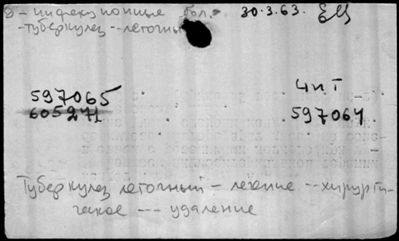 2 – инфекционные бол. – 30.3.63. ЕЦ
– туберкулез – легочный
ЧиТ
597065
597064
605271
Туберкулез легочный – лечение – хирурги-
ческое – – – удаление